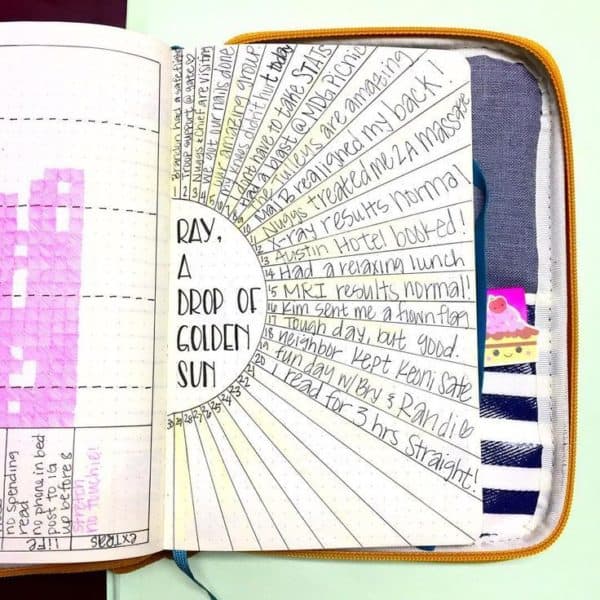 no spending
read
no phone in bed
post to IG
up before 8
life
stretch
extras
RAY,
A
DROP OF
GOLDEN
SUN
1 Brandon had a safe flight
2 Troop support @ gate
3 Nuggs & Chief are visiting
4 We got our nails done
5 our amazing group
6 My knees don't hurt today
7 Don't have to take STATs
8 Had a blast @ MDG Picnic
9 The Tuley's are amazing
10 Maj B realigned my back!
11 Nuggs treated me 2 A massage
12 X-ray results normal
13 Austin Hotel booked!
14 Had a relaxing lunch
15 MRI results normal!
16 Kim sent me a flown flag
17 Tough day, but good.
18 neighbor kept Keoni safe
19 fun day w/ Bry & Randi
20 I read for 3 hrs Straight!
21
22
23
24
25
26
27
28
29
30